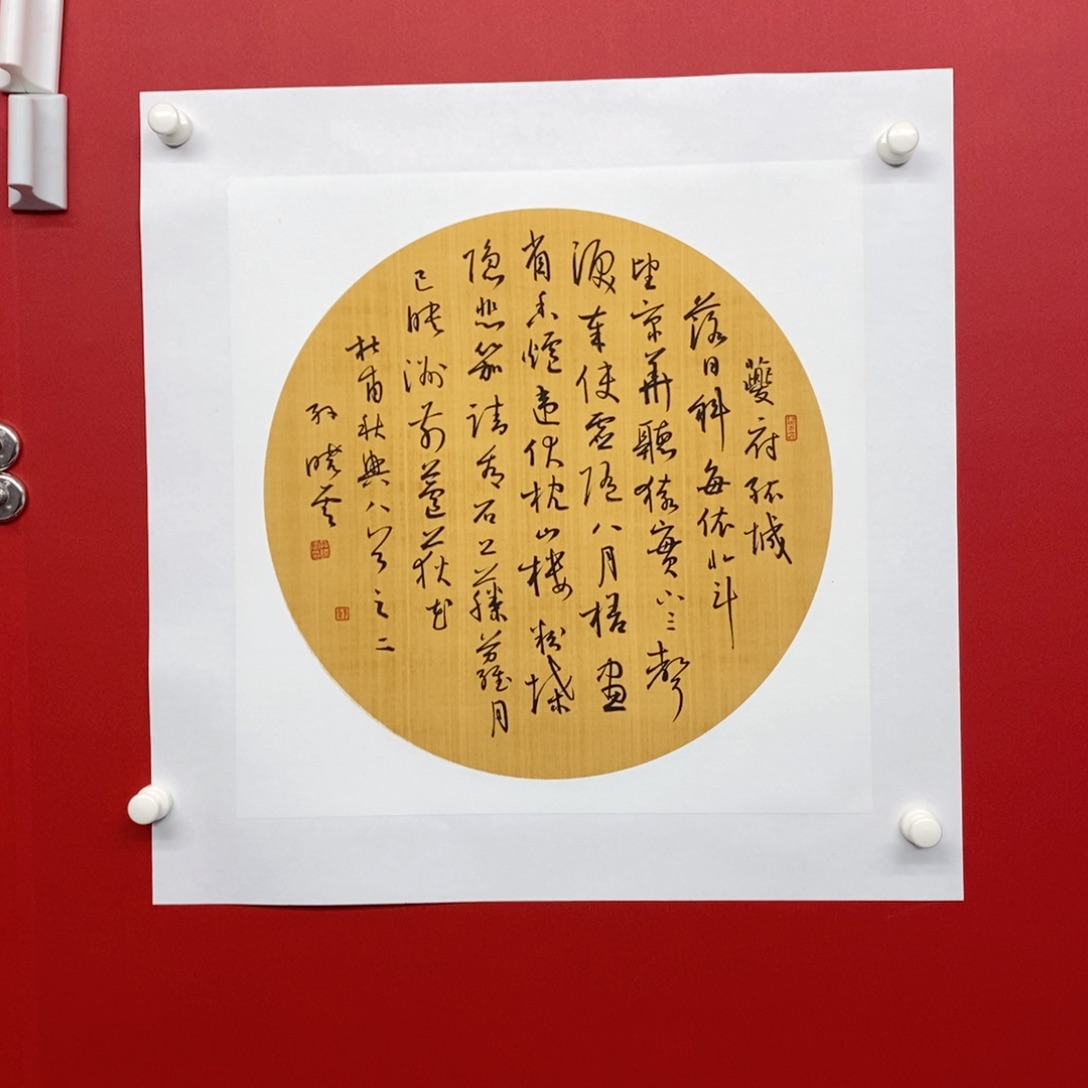 夔府孤城
落日斜每依北斗
望京華聽猿實下三聲
淚奉使虛随八月槎畫
省香爐違伏枕山楼粉堞
隐悲笳請看石上藤蘿月
已映洲前蘆荻花
杜甫秋興八首之二
孙曉云